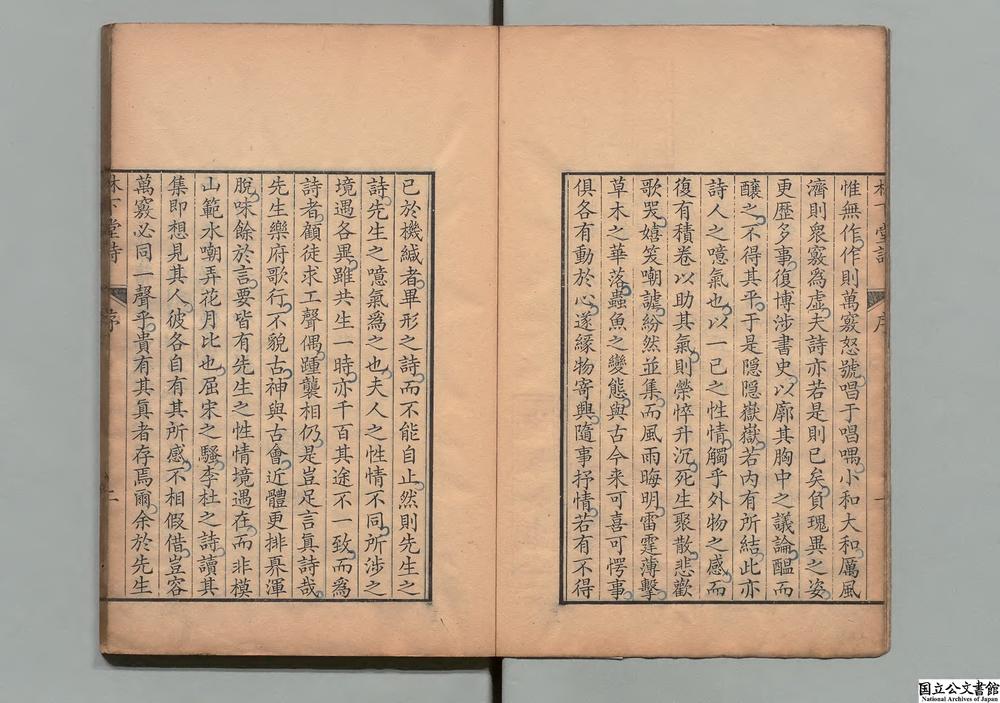 惟無作作則萬竅怒號唱于唱喁小和大和厲風
濟則衆竅爲虛夫詩亦若是則已矣負瑰異之姿
更歷多事復博涉書史以廓其胸中之議論醞而
釀之不得其平于是隱隱嶽嶽若内有所結此亦
詩人之噫氣也以一己之性情觸乎外物之感而
復有積卷以助其氣則榮悴升沉死生聚散悲歡
歌哭嬉笑嘲謔紛然並集而風雨晦明雷霆薄擊
草木之華落蟲魚之變態與古今來可喜可愕事
俱各有動於心遂緣物寄興隨事抒情若有不得
已於機緘者畢形之詩而不能自止然則先生之
詩先生之噫氣爲之也夫人之性情不同所涉之
境遇各異雖共生一時亦千百其途不一致而爲
詩者顧徒求工聲偶踵襲相仍是豈足言眞詩哉
先生樂府歌行不貌古神與古會近體更排奡渾
脫味餘於言要皆有先生之性情境遇在而非模
山範水嘲弄花月比也屈宋之騷李杜之詩讀其
集即想見其人彼各自有其所感不相假借豈容
萬竅必同一聲乎貴有其眞者存焉爾余於先生
林下堂詩 序 二
国立公文書館
National Archives of Japan